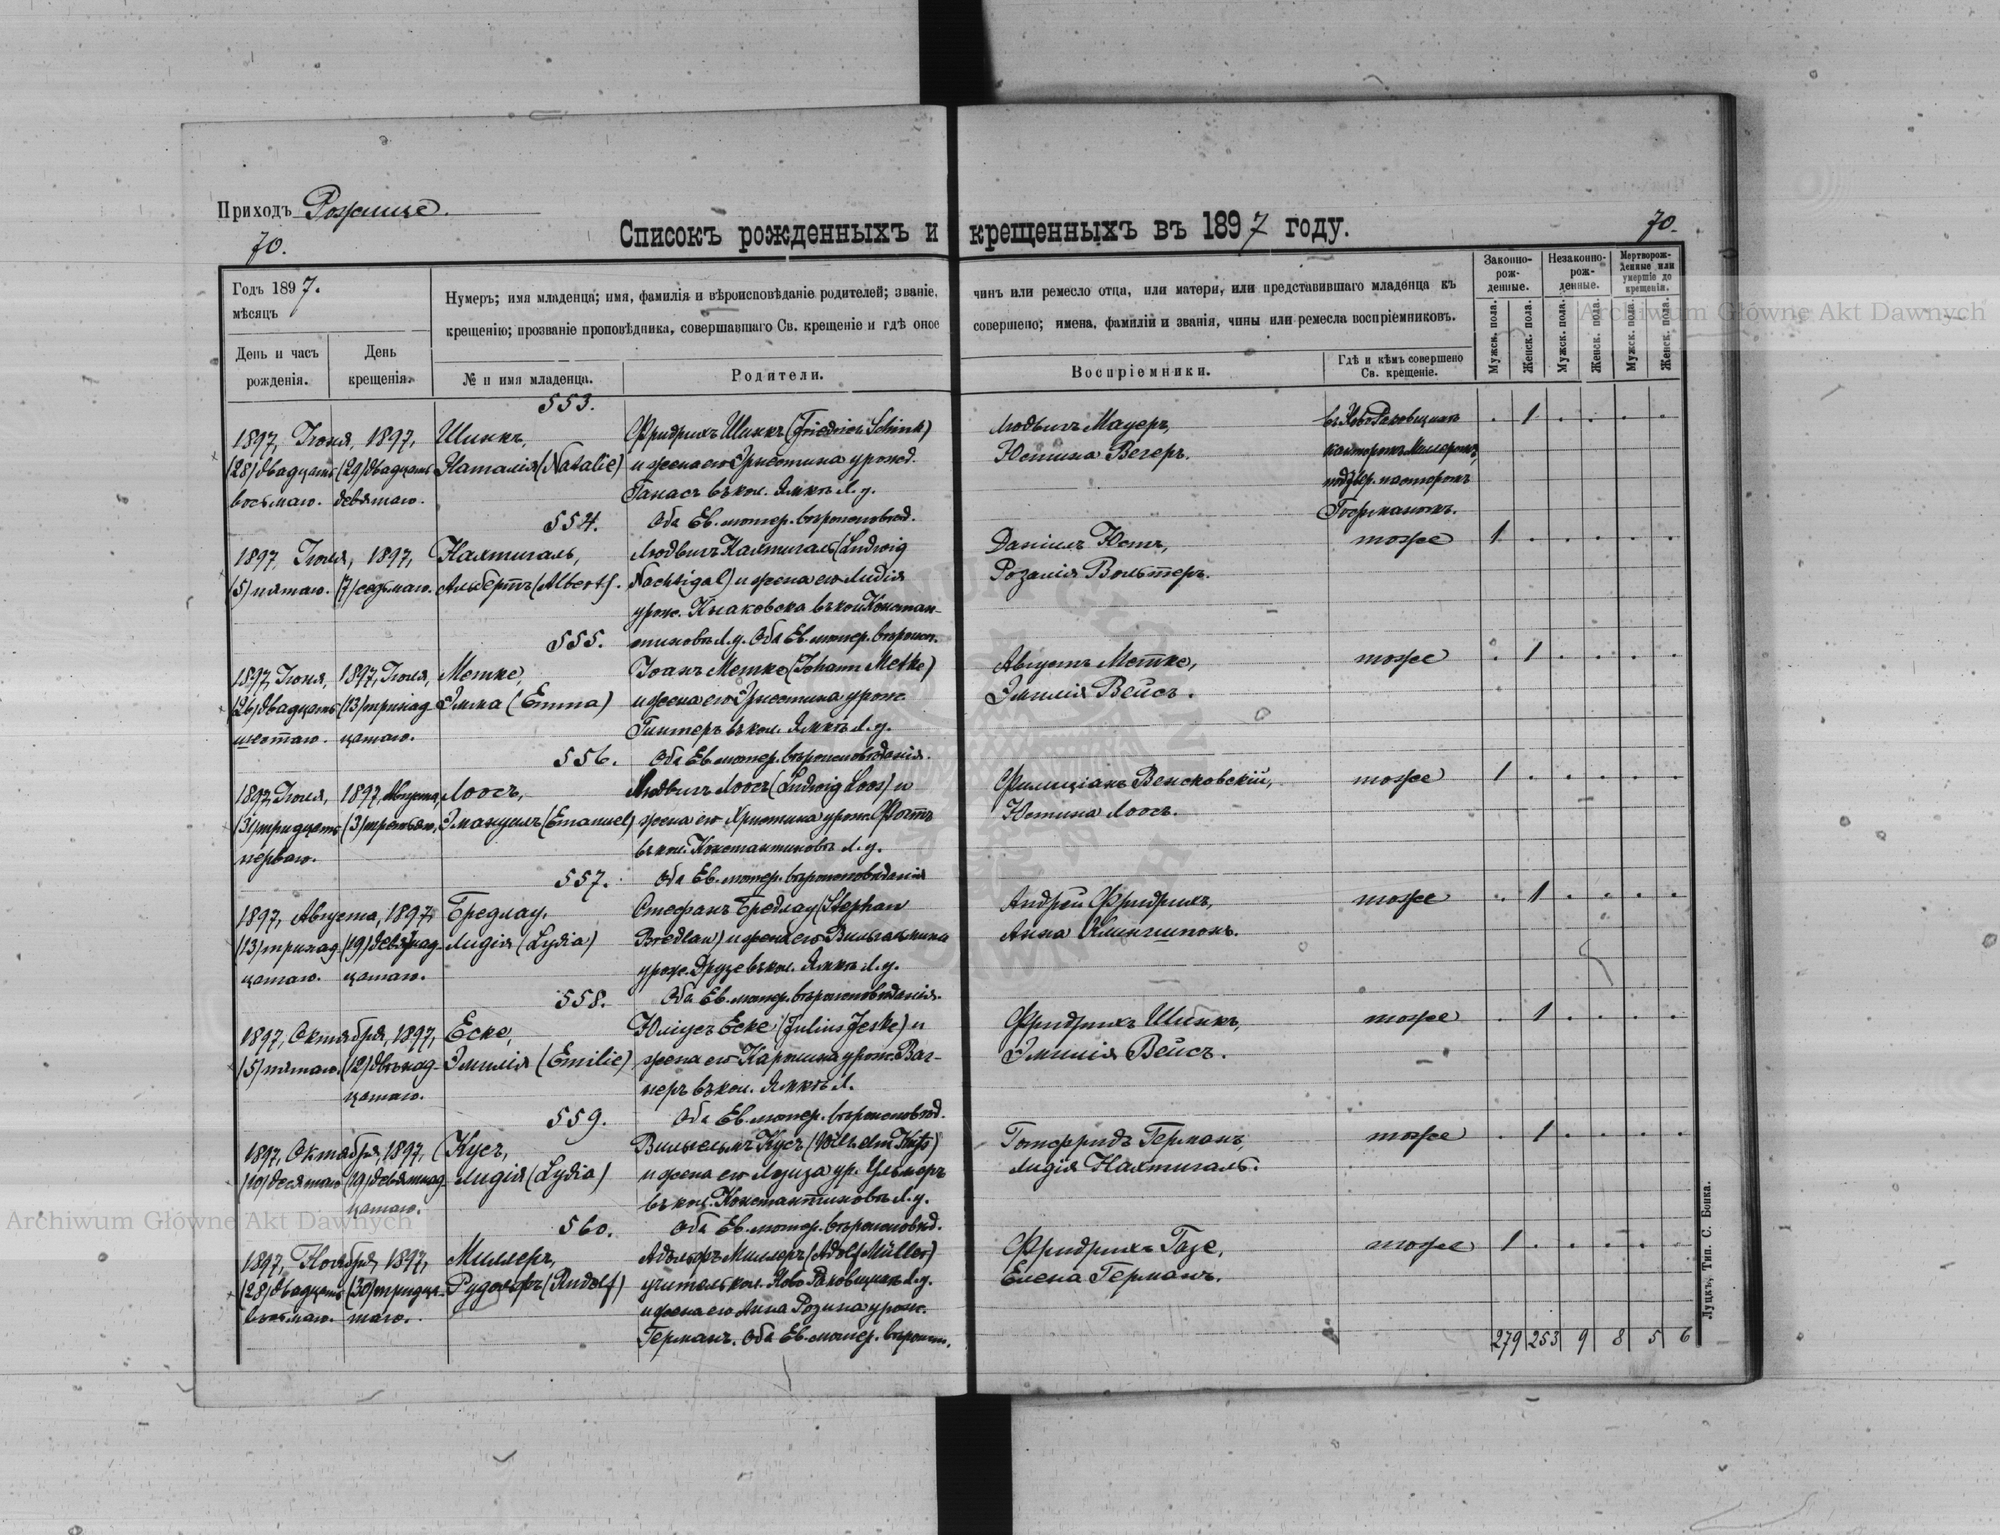 Приходъ Рожище.
70.
Списокъ рожденныхъ и крещенныхъ въ 1897 году.
70.
Годъ 1897.
мѣсяцъ
День и часъ рожденія.
День крещенія.
Нумеръ; имя младенца; имя, фамилія и вѣроисповѣданіе родителей; званіе, чинъ или ремесло отца, или матери, или представившаго младенца къ
крещенію; прозваніе проповѣдника, совершавшаго Св. крещеніе и гдѣ оное совершено; имена, фамиліи и званія, чины или ремесла воспріемниковъ.
№ и имя младенца.
Родители.
Воспріемники.
Гдѣ и кѣмъ совершено Св. крещеніе.
Законно-рож-денные.
Незаконно-рож-денные.
Мертворож-денные или умершіе до крещенія.
Мужск. пола.
Женск. пола.
Мужск. пола.
Женск. пола.
Мужск. пола.
Женск. пола.
553.
1897, Іюня, 1897, Шинкъ, Фридрихъ Шинкъ (Friedrich Schink) Людвигъ Мауеръ, 1
(28) двадцать (29) двадцать Наталія (Natalie) и жена его Эрнестина урожд. Юстина Вегеръ. канторомъ Миллеромъ,
восьмаго. девятаго. Ганасъ въ кол. Ямкѣ Л. у. подтвер. пасторомъ
Оба Ев. лютер. вѣроисповѣд.
554.
1897, Іюля, 1897, Нахтигаль, Людвигъ Нахтигаль (Ludwig Даніилъ Юстъ, тоже 1
(5) пятаго. (7) седьмаго. Альбертъ (Albert). Nachtigal) и жена его Лидія Розалія Вольтеръ.
урож. въ кол. Констан-
тиновкѣ Л. у. Оба Ев. лютер. вѣроисп.
555.
1897, Іюня, 1897, Іюля, Метке, Іоанъ Метке (Johann Metke) Августъ Метке, тоже 1
(26) двадцать (13) тринад- Эмма (Emma) и жена его Эрнестина урож. Эмилія Вейсъ.
шестаго. цатаго. Гинтеръ въ кол. Ямкѣ Л. у.
Оба Ев. лютер. вѣроисповѣданія.
556.
1897, Іюля, 1897, Августа, Лоосъ, Людвигъ Лоосъ (Ludwig Loos) и Фелиціанъ Венсковскій, тоже 1
(31) тридцать (3) третьяго, Эмануилъ (Emanuel) жена его Христина урож. Фотъ Юстина Лоосъ.
перваго. въ кол. Константиновкѣ Л. у.
Оба Ев. лютер. вѣроисповѣданія
557.
1897, Августа, 1897, Бредлау, Стефанъ Бредлау (Stephan Андрей Фридрихъ, тоже 1
(13) тринад- (19) девятнад- Лидія (Lydia) Bredlau) и жена его Вильгельмина Анна Клингшпонъ.
цатаго. цатаго. урож. въ кол. Ямкѣ Л. у.
Оба Ев. лютер. вѣроисповѣданія.
558.
1897, Октября, 1897, Еске, Юліусъ Еске (Julius Jeske) и Фридрихъ Шинкъ, тоже 1
(5) пятаго. (12) двѣнад- Эмилія (Emilie) жена его Каролина урож. Ваг- Эмилія Вейсъ.
цатаго. неръ въ кол. Ямкѣ Л.
Оба Ев. лютер. вѣроисповѣд.
559.
1897, Октября, 1897, Кусъ, Вильгельмъ Кусъ Готфридъ Германъ, тоже 1
(10) десятаго (19) девятнад- Лидія (Lydia) и жена его Луиза ур. Ульмеръ Лидія Нахтигаль.
цатаго. въ кол. Константиновкѣ Л. у.
Оба Ев. лютер. вѣроисповѣд.
560.
1897, Ноября, 1897, Миллеръ, Адольфъ Миллеръ (Adolf Müller) Фридрихъ Газе, тоже 1
(28) двадцать (30) тридца- Рудольфъ (Rudolf) учитель кол. Ново Раковщизна Л. у. Елена Германъ.
восьмаго. таго. и жена его Анна Розина урож.
Германъ. Оба Ев. лютер. вѣроисп.
279 253 9 8 5 6
Луцкъ, Тип. С. Бонка.
Archiwum Główne Akt Dawnych
Archiwum Główne Akt Dawnych